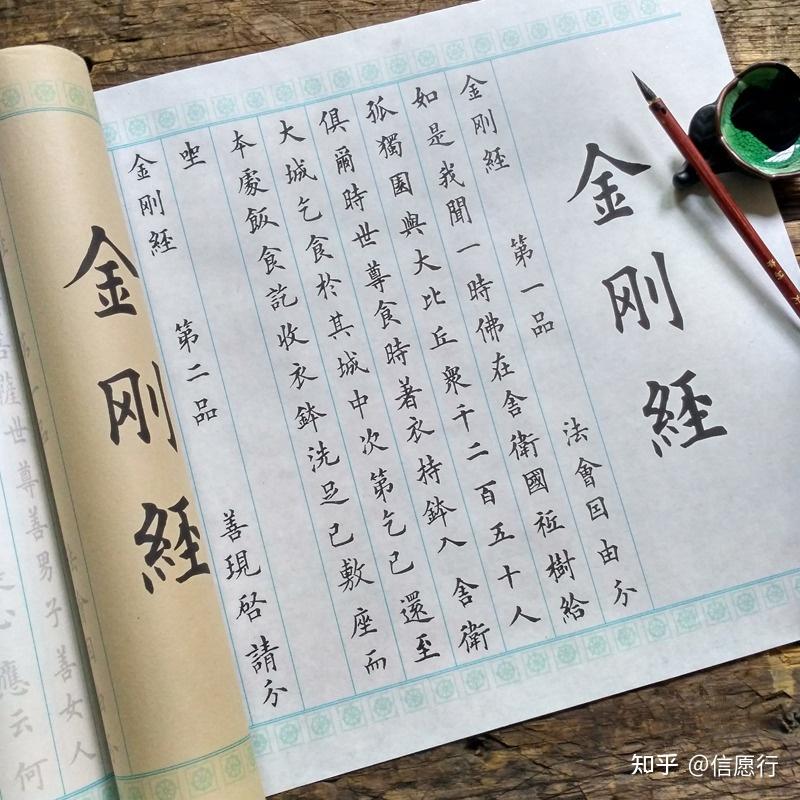 金刚經
金刚經 第一品 法會因由分
如是我聞一時佛在舍衛國祇樹給
孤獨園與大比丘衆千二百五十人
俱爾時世尊食時著衣持鉢入舍衛
大城乞食於其城中次第乞已還至
本處飯食訖收衣鉢洗足已敷座而
坐
金刚經 第二品 善現啓請分
金刚經
菩薩世尊善男子善女人
心應云何
知乎 @信愿行